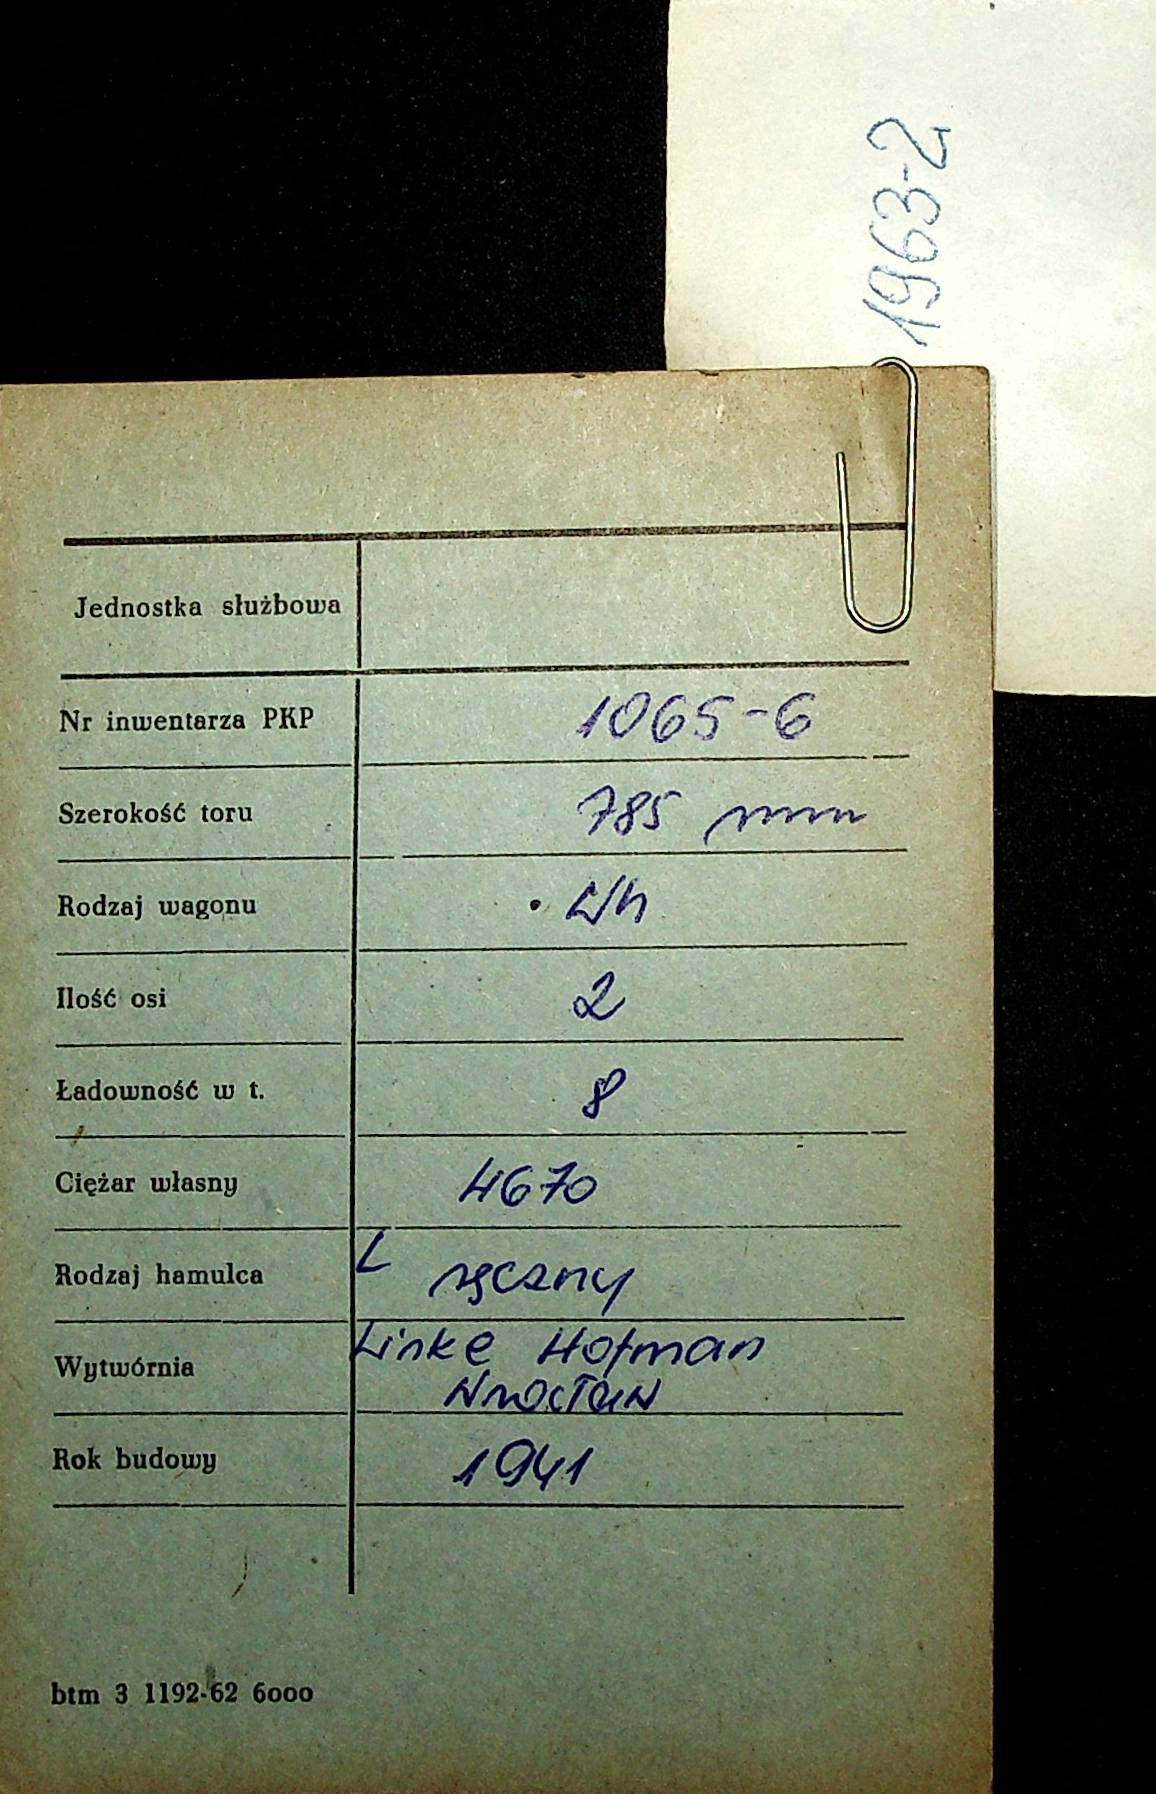 1963-2
Jednostka służbowa
Nr inwentarza PKP 1065-6
Szerokość toru 785 mm
Rodzaj wagonu Wh
Ilość osi 2
Ładowność w t. 8
Ciężar własny 4670
Rodzaj hamulca L ręczny
Wytwórnia Linke Hofman
Wrocław
Rok budowy 1941
btm 3 1192-62 6000